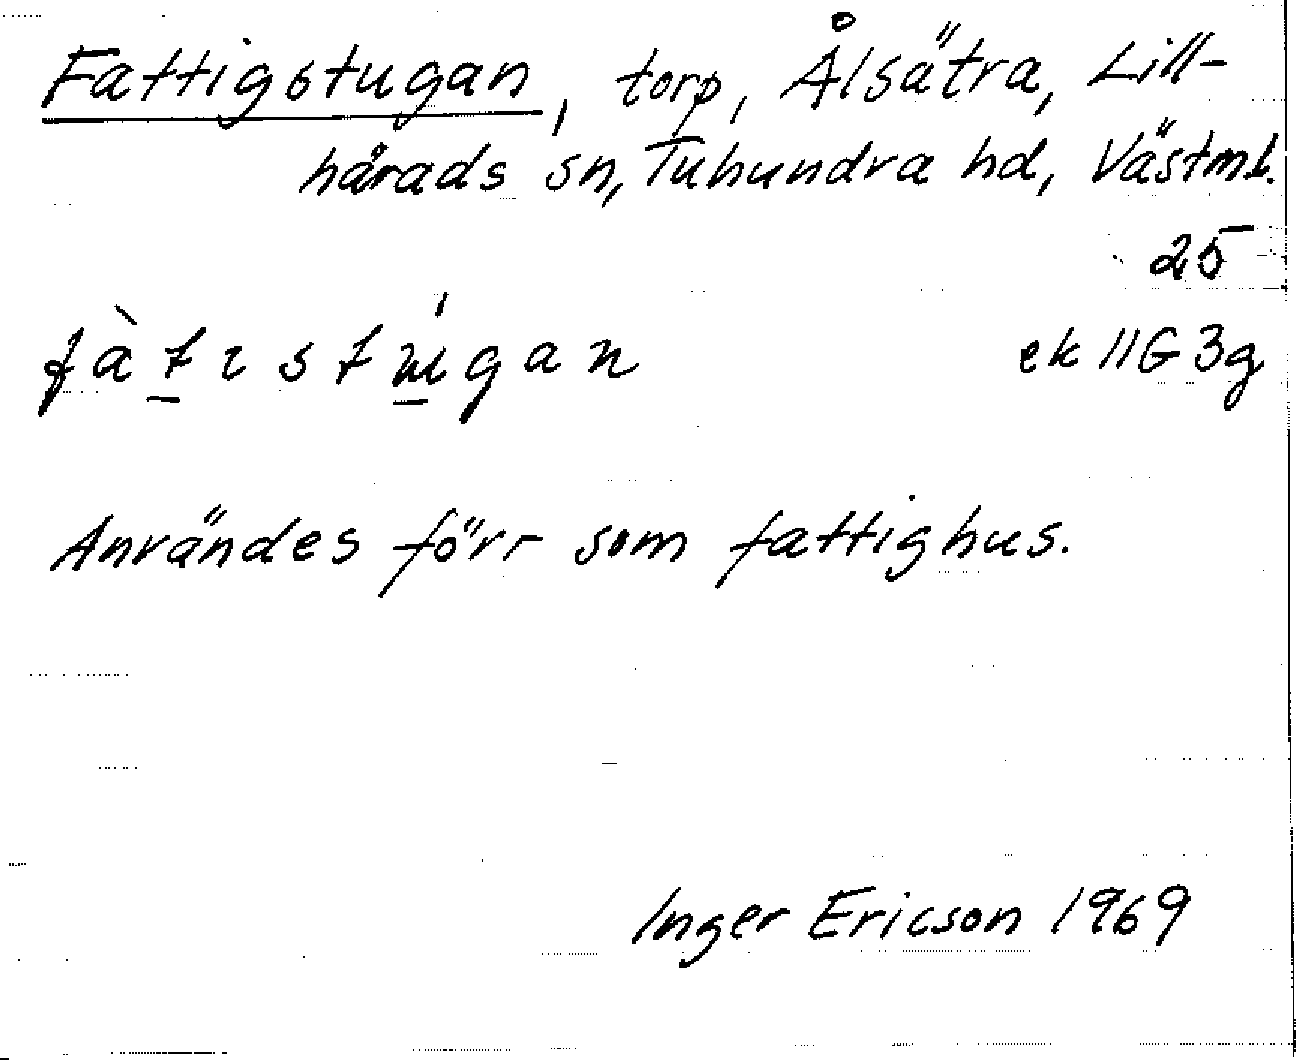 Fattigstugan, torp, Ålsätra, Lill-
hårads sn, Tuhundra hd, Västml.
25
ek 11G3g
Användes förr som fattighus.
Inger Ericson 1969